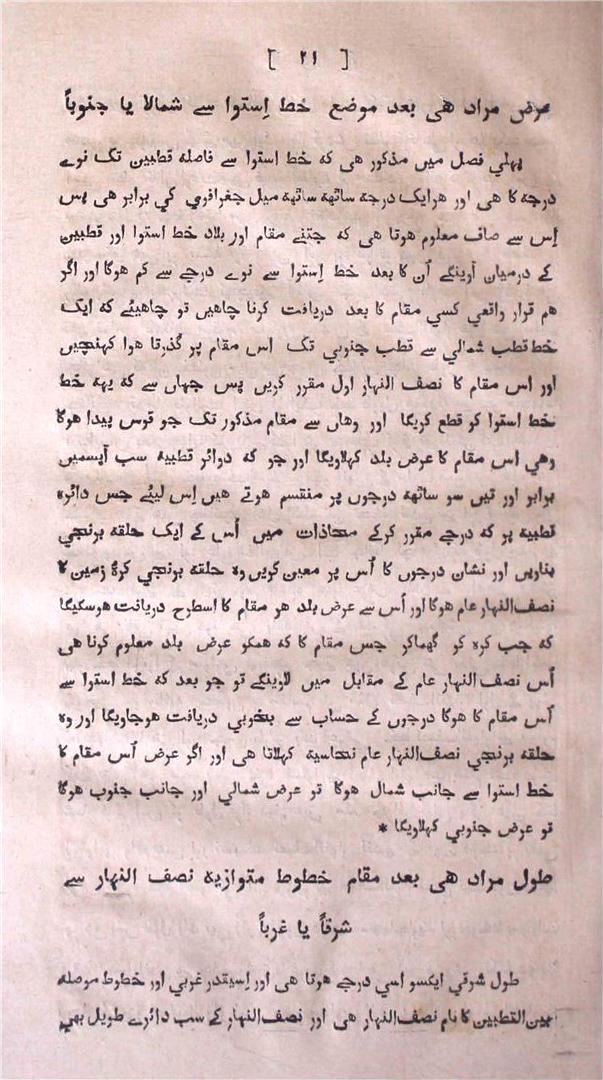 [ ۲۱ ]
عرض مراد هی بعد موضع خط اِستوا سے شمالا یا جنوباً
پہلي فصل میں مذکور هی که خط استوا سے فاصله قطبین تک نوے
درجه کا هی اور هرایک درجه ساتھه ساتھه میل جغرافوي کي برابر هی پس
اِس سے صاف معلوم هوتا هی که جتنے مقام اور بلاد خط استوا اور قطبین
کے درمیان آوینگے اُن کا بعد خط اِستوا سے نوے درجے سے کم هوگا اور اگر
هم قرار واقعي کسي مقام کا بعد دریافت کرنا چاهیں تو چاهیئے که ایک
خط قطب شمالي سے قطب جنوبي تک اس مقام پر گذرتا هوا کهنچیں
اور اس مقام کا نصف النہار اول مقرر کریں پس جہاں سے که یہه خط
خط استوا کو قطع کریگا اور وهاں سے مقام مذکور تک جو قوس پیدا هوگا
وهي اس مقام کا عرض بلد کہلاویگا اور جو که دوائر قطبیه سب آپسمیں
برابر اور تین سو ساتھه درجوں پر منقسم هوتے هیں اِس لیئے جس دائره
قطبیه پر که درجے مقرر کرکے محاذات میں اُس کے ایک حلقه برنجي
بناویں اور نشان درجوں کا اُس پر معین کریں وه حلقه برنجي کرهٔ زمین کا
نصف‌النہار عام هوگا اور اُس سے عرض بلد هر مقام کا اسطرح دریافت هوسکیگا
که جب کره کو گھماکر جس مقام کا که همکو عرض بلد معلوم کرنا هی
اُس نصف النہار عام کے مقابل میں لاوینگے تو جو بعد که خط استوا سے
اُس مقام کا هوگا درجوں کے حساب سے بخوبي دریافت هوجاویگا اور وه
حلقه برنجي نصف‌النہار عام نحاسیه کہلاتا هی اور اگر عرض اُس مقام کا
خط استوا سے جانب شمال هوگا تو عرض شمالي اور جانب جنوب هوگا
تو عرض جنوبي کہلاویگا *
طول مراد هی بعد مقام خطوط متوازیه نصف النہار سے
شرقاً یا غرباً
طول شرقي ایکسو اسي درجے هوتا هی اور اِسیقدر غربي اور خطوط موصله
بین القطبین کا نام نصف‌النہار هی اور نصف‌النہار کے سب دائرے طویل بهي